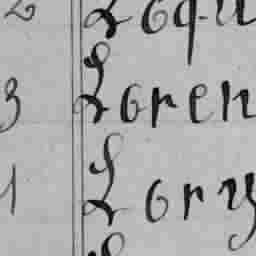 2 Loqu
3 Loren
1 Lory